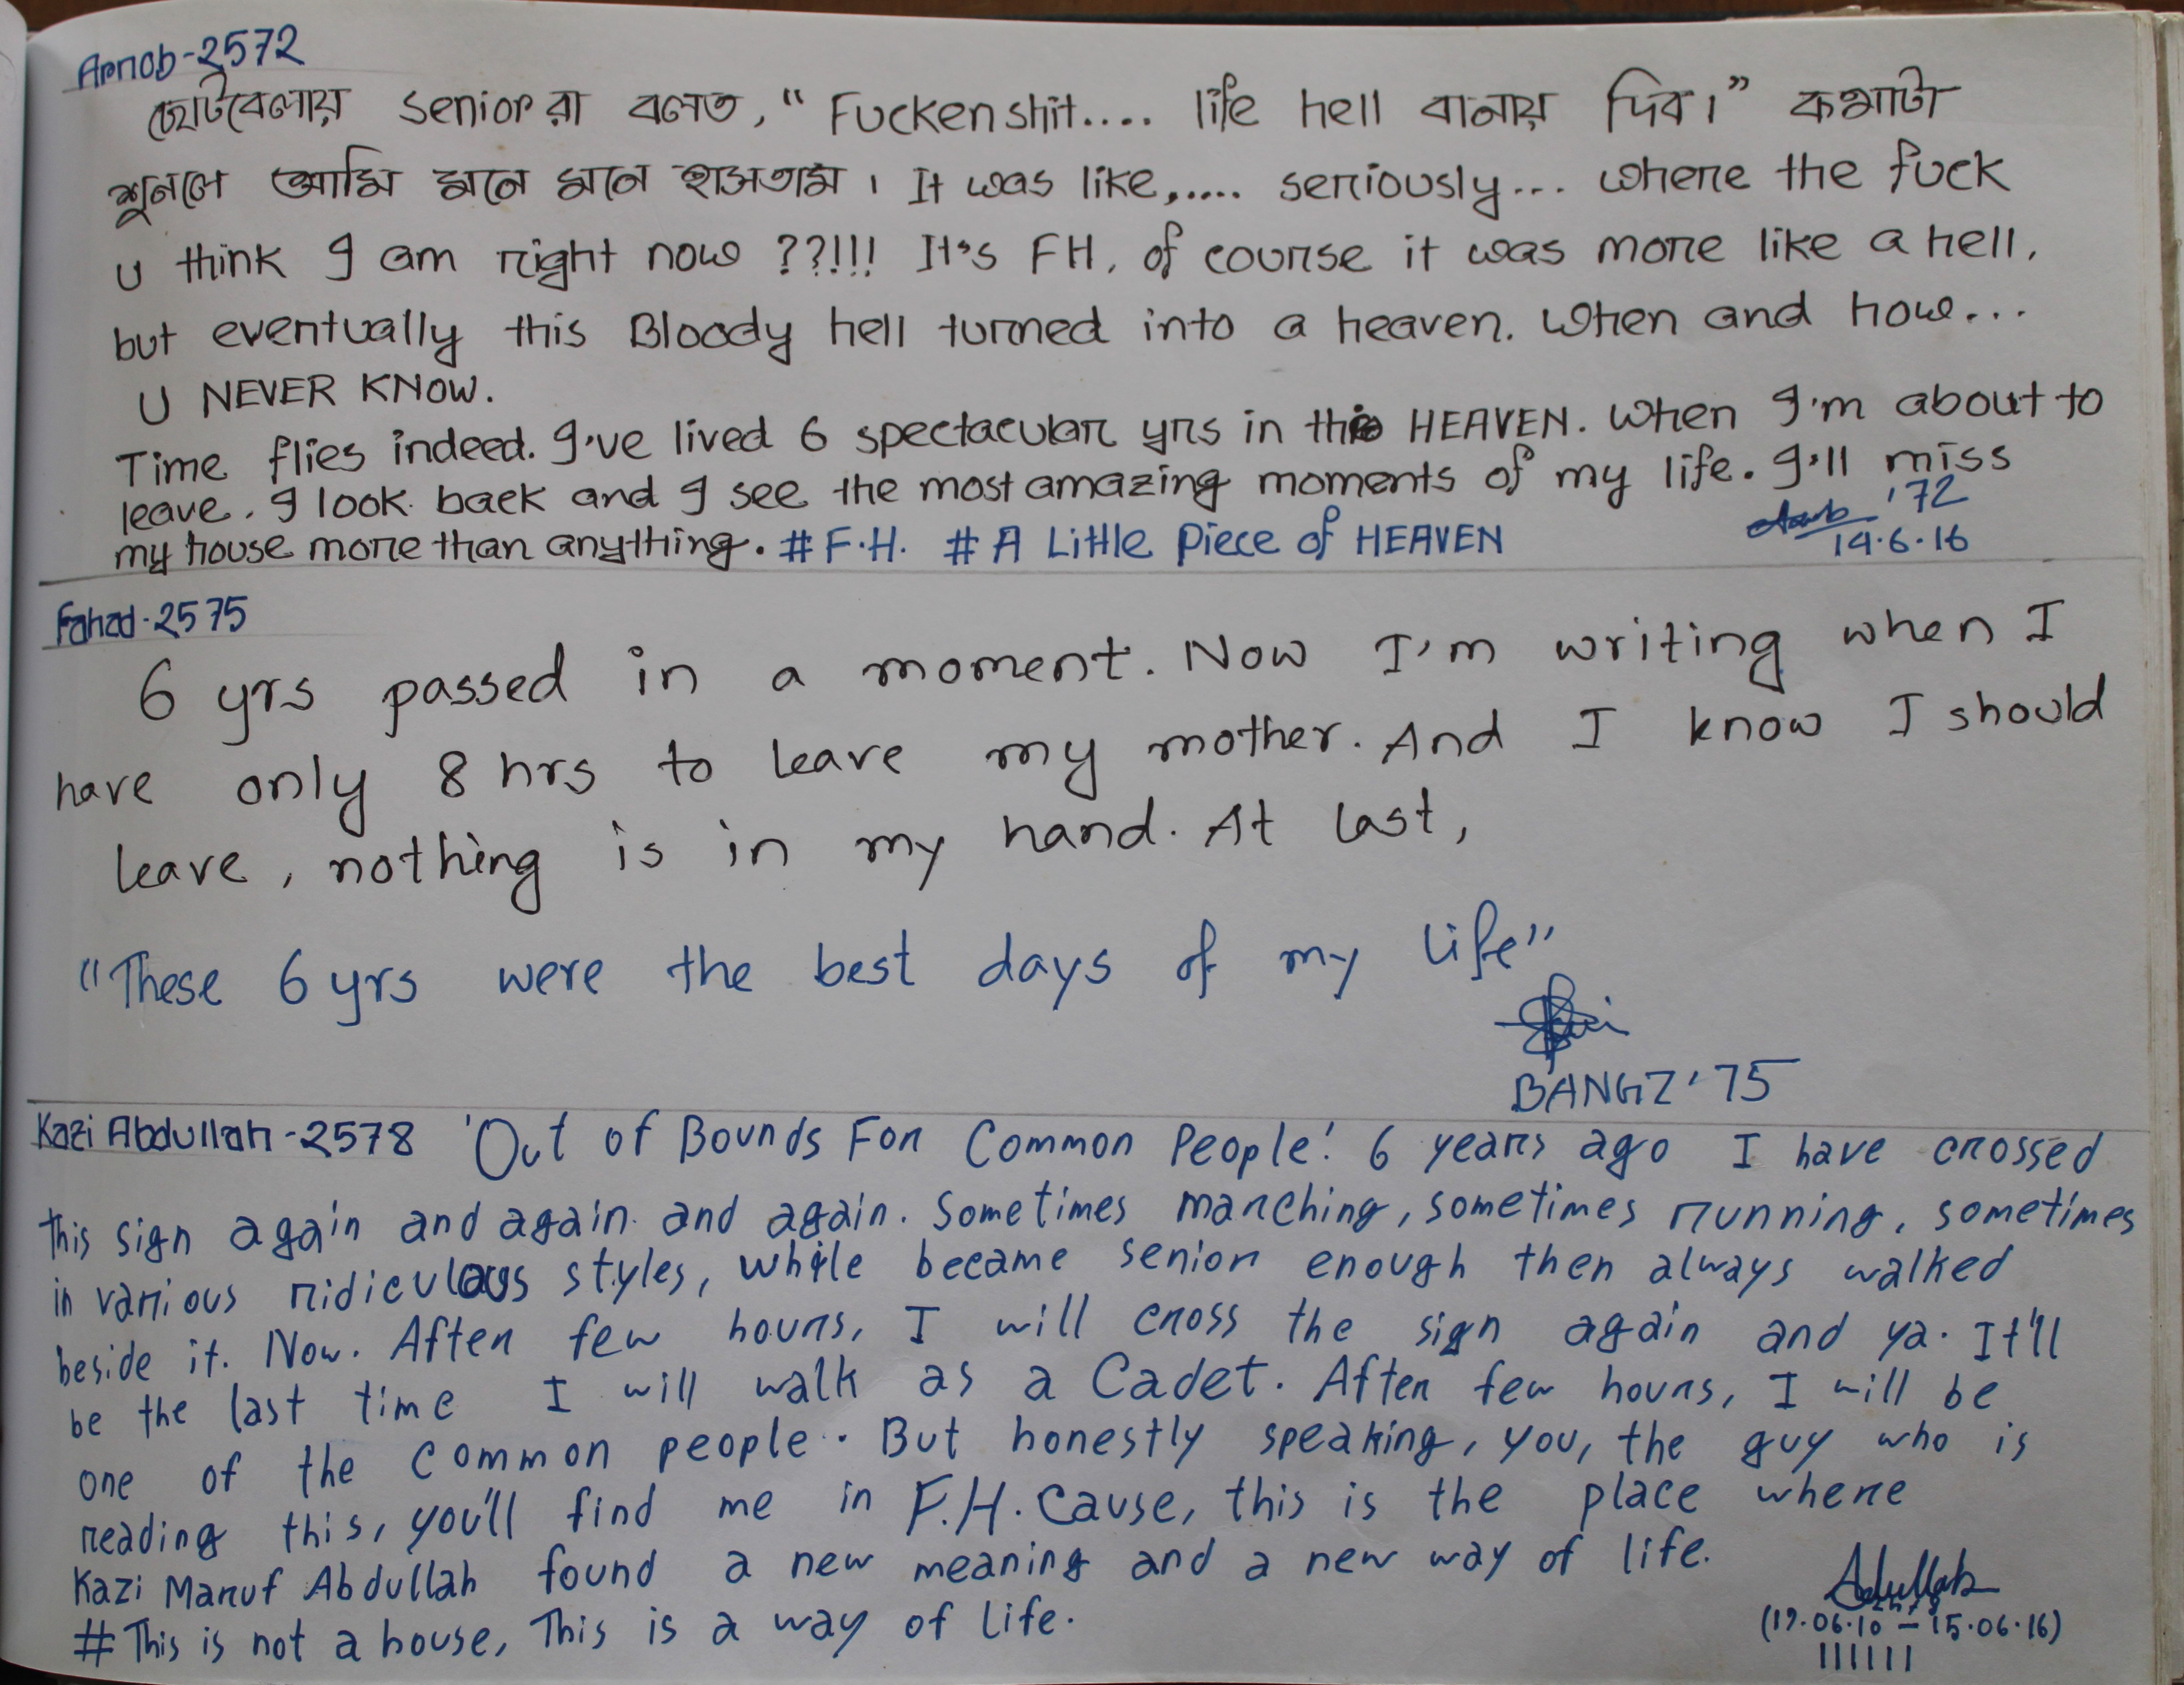 Arnob-2572
ছোটবেলায় senior রা বলত, " Fucken shit.... life hell বানায় দিব।" কথাটা
শুনলে আমি মনে মনে হাসতাম। It was like,..... seriously... where the fuck
u think I am right now ??!!! It's FH, of course it was more like a hell,
but eventually this Bloody hell turned into a heaven. When and how...
U NEVER KNOW.
Time flies indeed. I've lived 6 spectacular yrs in this HEAVEN. When I'm about to
leave, I look back and I see the most amazing moments of my life. I'll miss
my house more than anything. #F.H. # A Little Piece of HEAVEN
'72
19.6.16
Fahad-2575
6 yrs passed in a moment. Now I'm writing when I
have only 8 hrs to leave my mother. And I know I should
leave, nothing is in my hand. At last,
"These 6 yrs were the best days of my life"
BANGZ '75
Kazi Abdullah-2578 'Out of Bounds For Common People! 6 years ago I have crossed
this sign again and again and again. Sometimes marching, sometimes running, sometimes
in various ridiculous styles, while became senior enough then always walked
beside it. Now. After few hours, I will cross the sign again and ya. It'll
be the last time I will walk as a Cadet. After few hours, I will be
one of the common people. But honestly speaking, you, the guy who is
reading this, you'll find me in F.H. Cause, this is the place where
Kazi Maruf Abdullah found a new meaning and a new way of life.
# This is not a house, This is a way of life.
Abdullah
2578
(19.06.10 – 15.06.16)